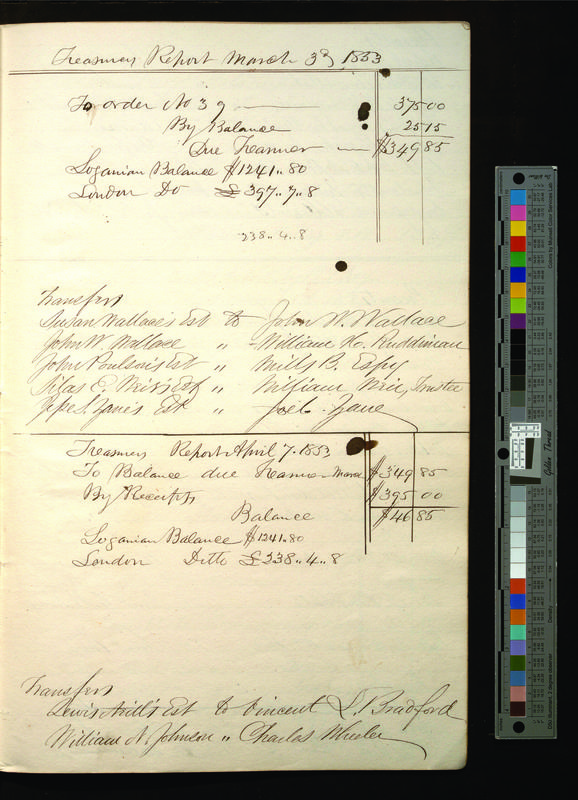 Treasurers Report March 3d, 1853
To order No 39 — 375 00
By Balance 25 15
Due Treasurer — $349 85
Loganian Balance $1241.. 80
London Do £ 397.. 7.. 8
238.. 4.. 8
Transfers
Susan Wallace's Est to John W. Wallace
John W Wallace " William H. Ruddiman
John Poulson's Est " Mills B. Espy
Silas E. Weir's Est " William Weir, Trustee
Jesse S. Zane's Est " Joel C. Zane
Treasurers Report April 7. 1853
To Balance due Treasurer March $349 85
By Receipts $395 00
Balance $46 85
Loganian Balance $1241.80
London Ditto £238.. 4.. 8
Transfers
Lewis Est to Vincent L. Bradford
William N. Johnson " Charles Wheeler
Golden Thread